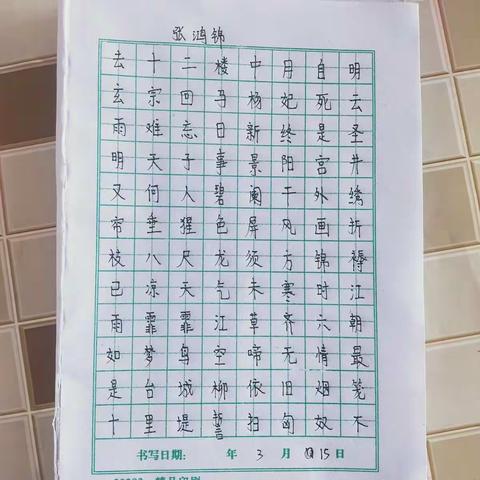 张鸿锦
去十二楼中月自明
玄宗回马杨妃死云
雨难忘日新终是圣
明天子事景阳宫井
又何人碧阑干外绣
帘垂猩色屏风画折
枝八尺龙须方锦褥
已凉天气未寒时江
雨霏霏江草齐六朝
如梦鸟空啼无情最
是台城柳依旧烟笼
十里堤誓扫匈奴不
书写日期： 年 3 月 15 日